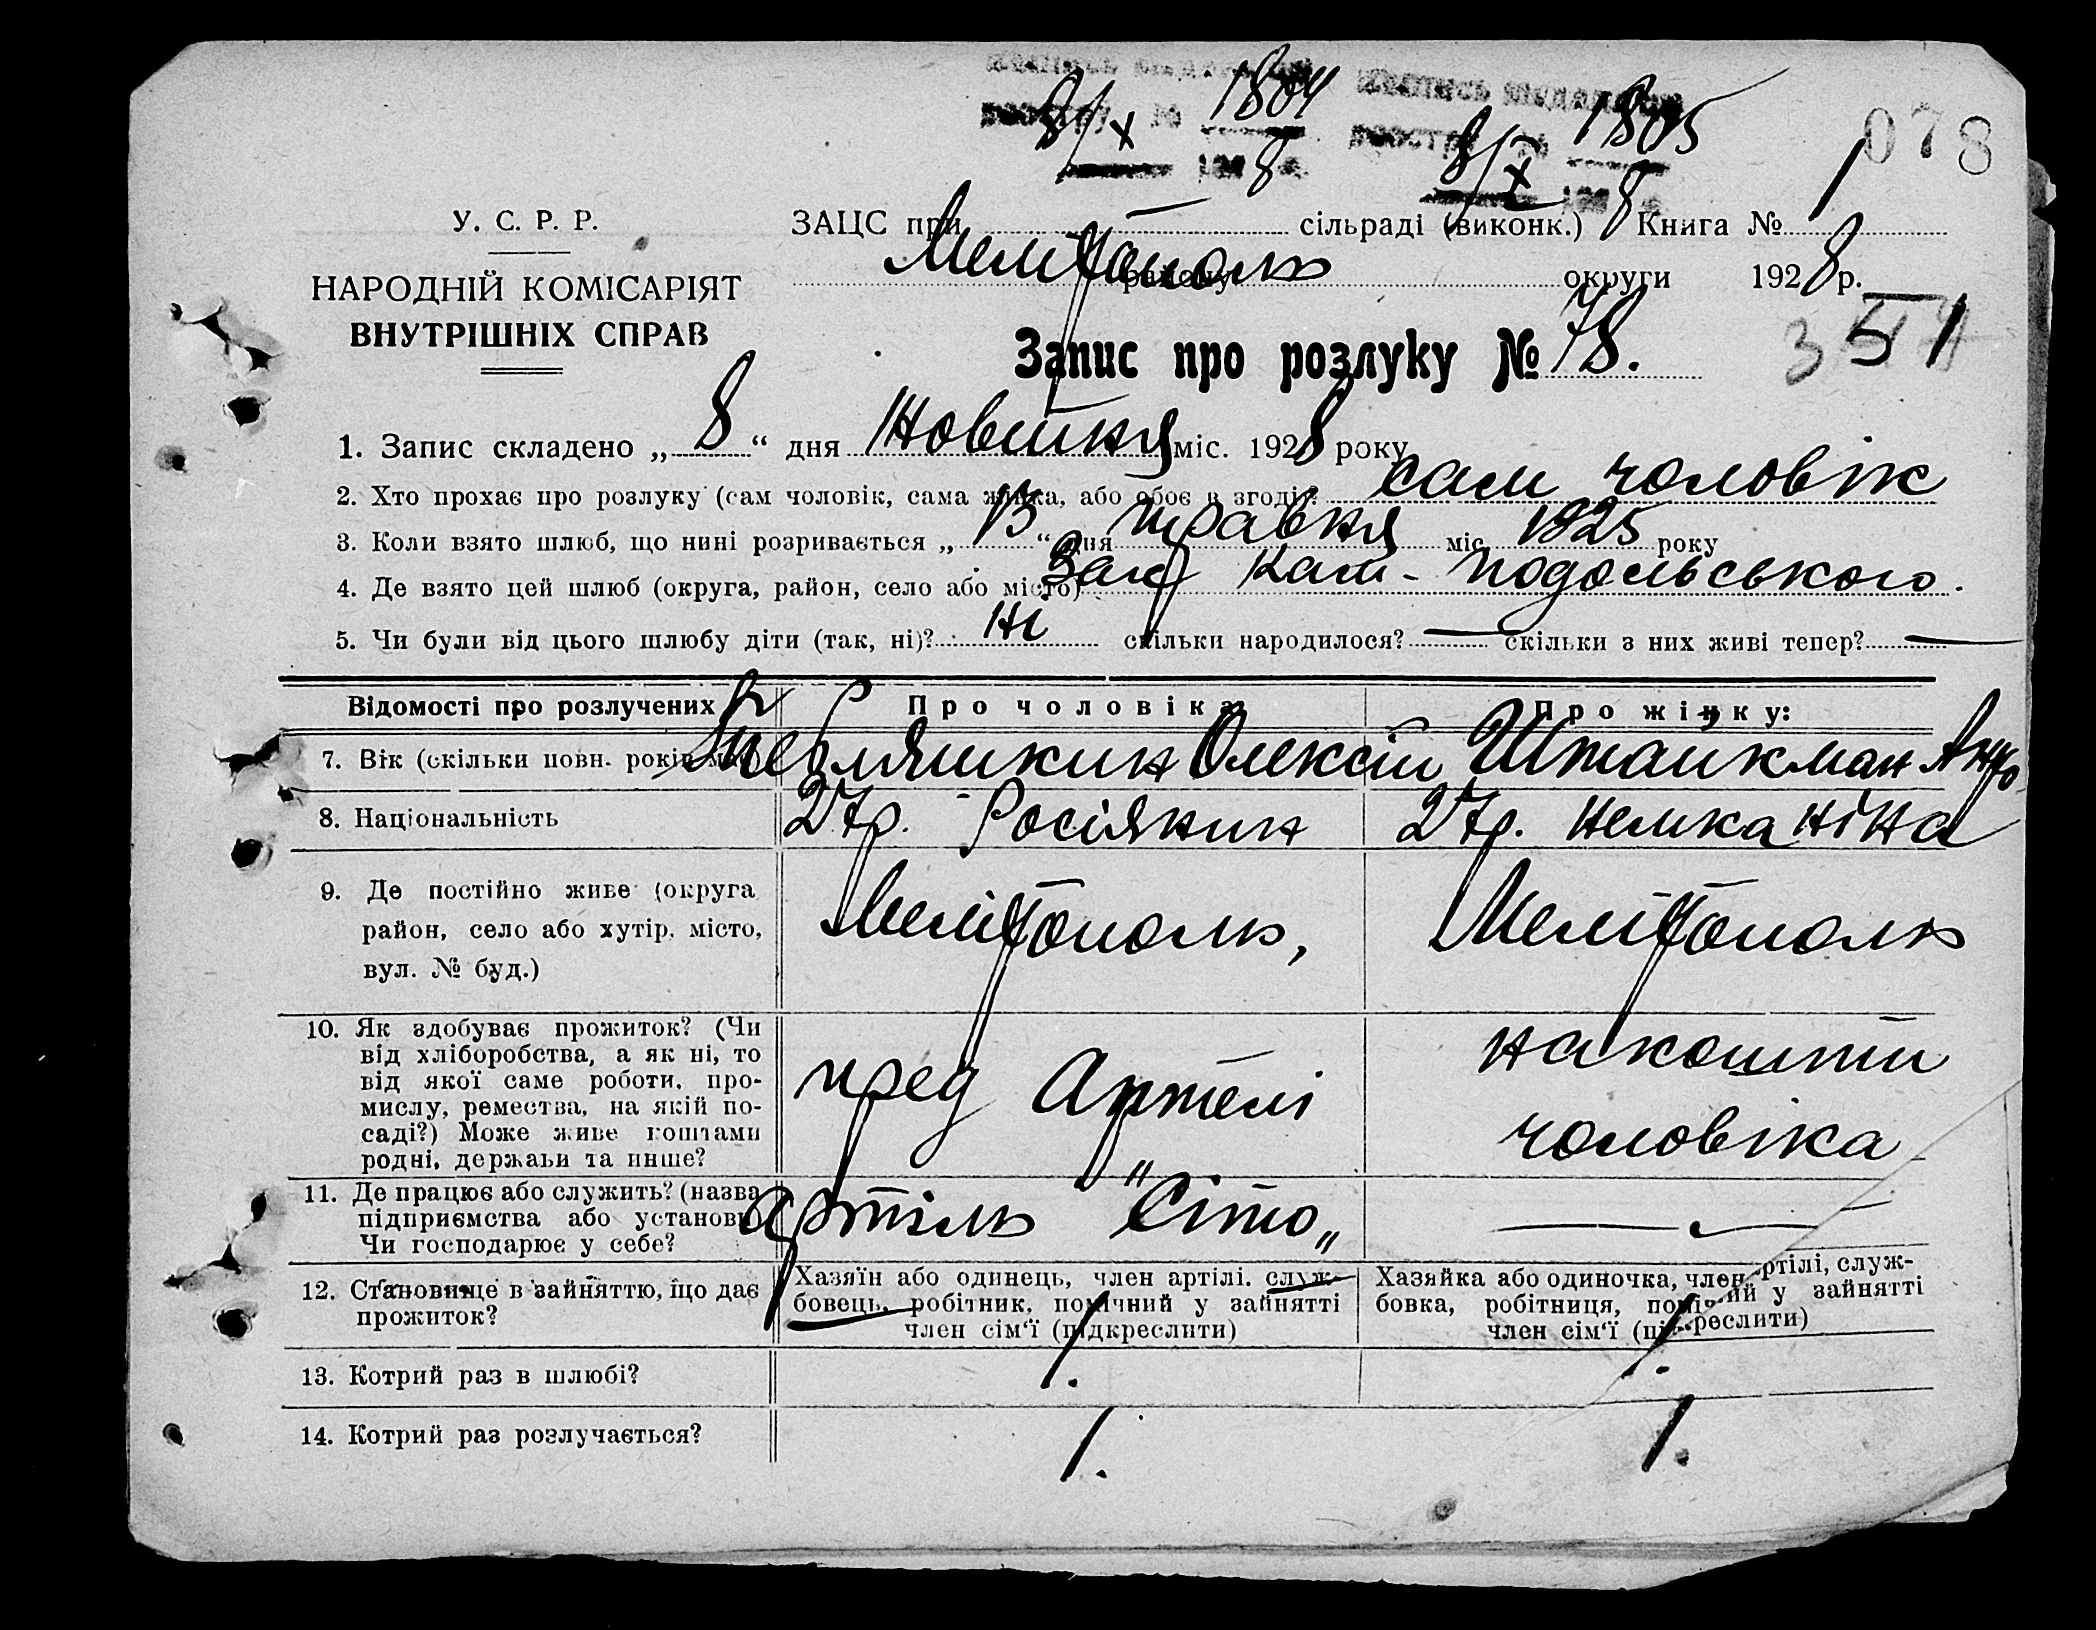 8/X 1804 8
8/X 1805 8
078
У. С. Р. Р.
НАРОДНІЙ КОМІСАРІЯТ
ВНУТРІШНІХ СПРАВ
ЗАЦС при сільраді (виконк.) Книга № 1
Мелітополь району округи 1928 р.
Запис про розлуку № 78.
1. Запис складено „ 8 “ дня міс. 1928 року
2. Хто прохає про розлуку (сам чоловік, сама жінка, або обоє в згоді)? сам чоловік
3. Коли взято шлюб, що нині розривається „ 13 “ дня травня міс. 1925 року
4. Де взято цей шлюб (округа, район, село або місто) Заг Кам-Подольського.
5. Чи були від цього шлюбу діти (так, ні)? ні скільки народилося? — скільки з них живі тепер? —
Відомості про розлучених Про чоловіка Про жінку:
7. Вік (скільки повн. років має) Олексій Штайкман
8. Національність 27 р. Росіянин 27 р. немка Ніна
9. Де постійно живе (округа
район, село або хутір, місто,
вул. № буд.)
Мелітополь, Мелітополь
10. Як здобуває прожиток? (Чи
від хліборобства, а як ні, то
від якої саме роботи, про-
мислу, ремества, на якій по-
саді?) Може живе коштами
родні, держави та инше?
пред Артелі на кошти
чоловіка
11. Де працює або служить? (назва
підприємства або установи)
Чи господарює у себе?
артіль "Сіто„ —
12. Становище в зайняттю, що дає
прожиток?
Хазяїн або одинець, член артілі, служ-
бовець, робітник, помічний у зайнятті
член сім'ї (підкреслити)
Хазяйка або одиночка, член артілі, служ-
бовка, робітниця, помічний у зайнятті
член сім'ї (підкреслити)
13. Котрий раз в шлюбі? 1. 1.
14. Котрий раз розлучається? 1. 1.